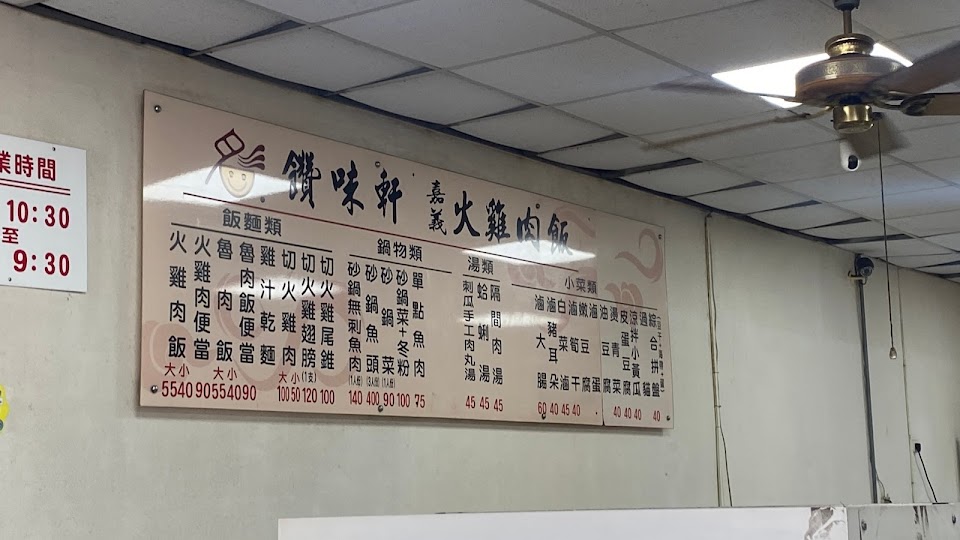 業時間
10:30
至
9:30
鑽味軒 嘉義 火雞肉飯
飯麵類
火雞肉飯 大55 小40
火雞肉便當 90
魯肉飯 大55 小40
魯肉飯便當 90
雞汁乾麵
切火雞肉 大100 小50
切火雞翅膀 (1支) 120
切火雞尾錐 100
鍋物類
砂鍋無刺魚肉 (1人份) 140
砂鍋魚頭 (3人份) 400
砂鍋菜 (1人份) 90
砂鍋菜+冬粉 100
單點魚肉 75
湯類
刺瓜手工肉丸湯 45
蛤蜊湯 45
隔間肉湯 45
小菜類
滷大腸 60
滷豬耳朵 40
白菜滷 45
滷筍干 40
嫩豆腐
滷蛋
油豆腐
燙青菜 40
皮蛋豆腐 40
涼拌小黃瓜 40
過貓
綜合拼盤 40